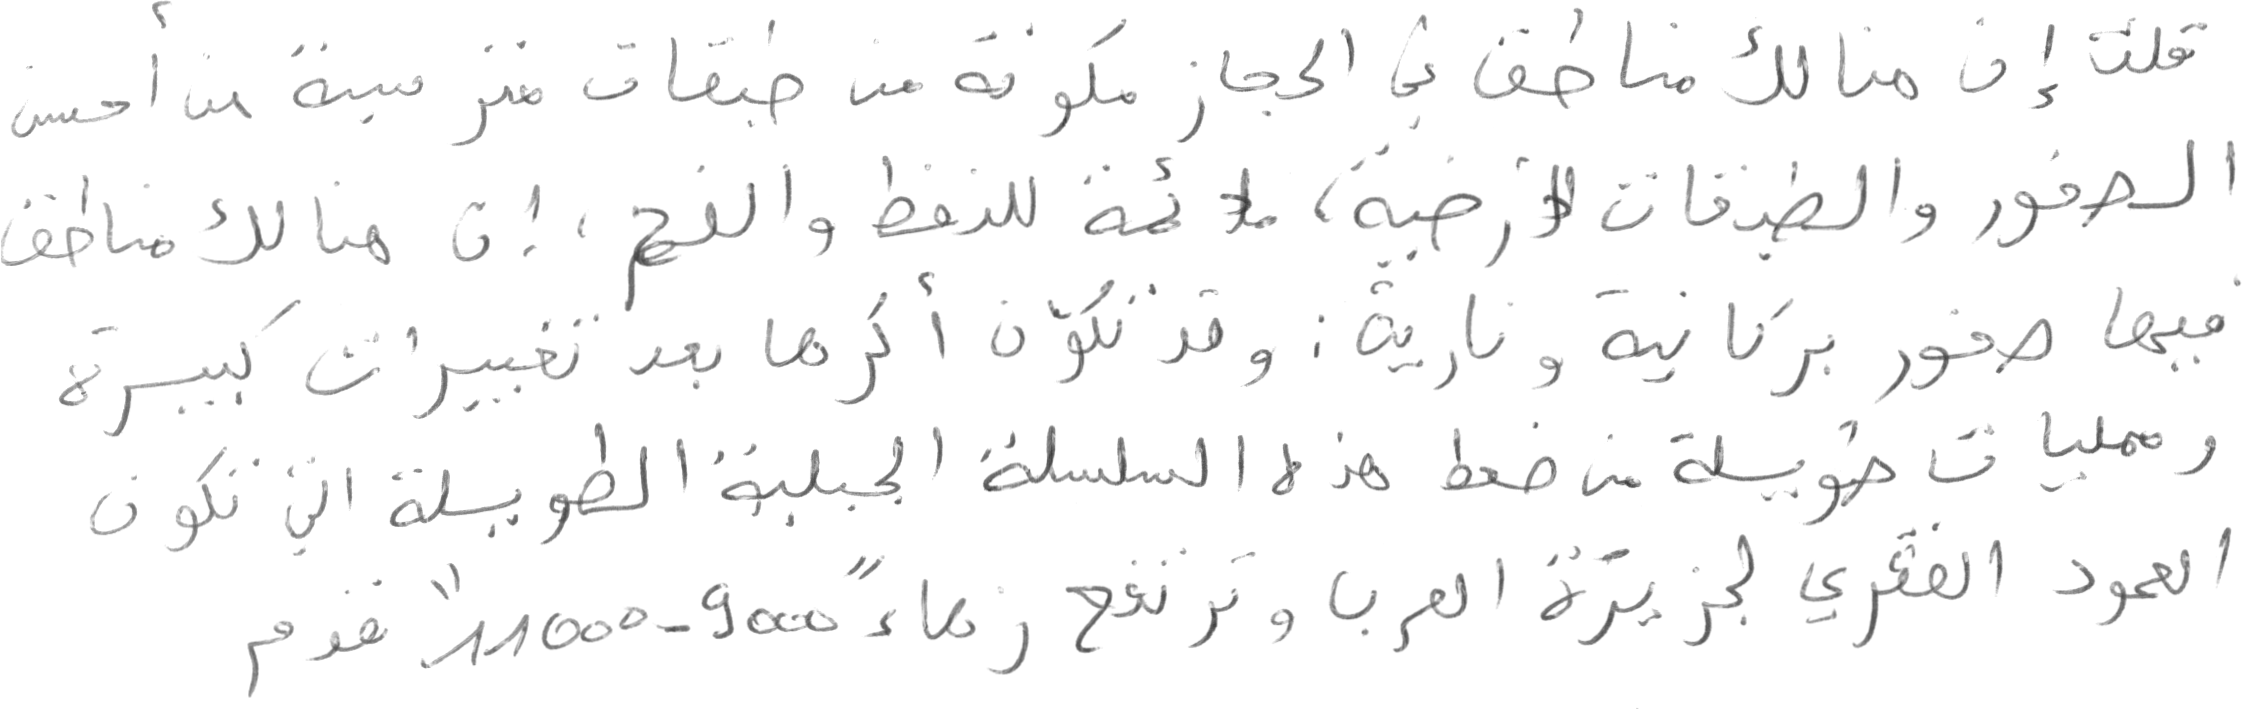 قلت إن هنالك مناطق في الحجاز مكونة من طبقات مترسبة من أحسن
الصخور والطبقات الأرضية، ملائمة للنفط والفحم، إن هنالك مناطق
فيها صخور بركانية ونارية: وقد تكوّن أكثرها بعد تغييرات كبيرة
وعمليات طويلة من ضغط هذه السلسلة الجبلية الطويلة التي تكون
العمود الفقري لجزيرة العرب وترتفع زهاء "9000-11000" قدم